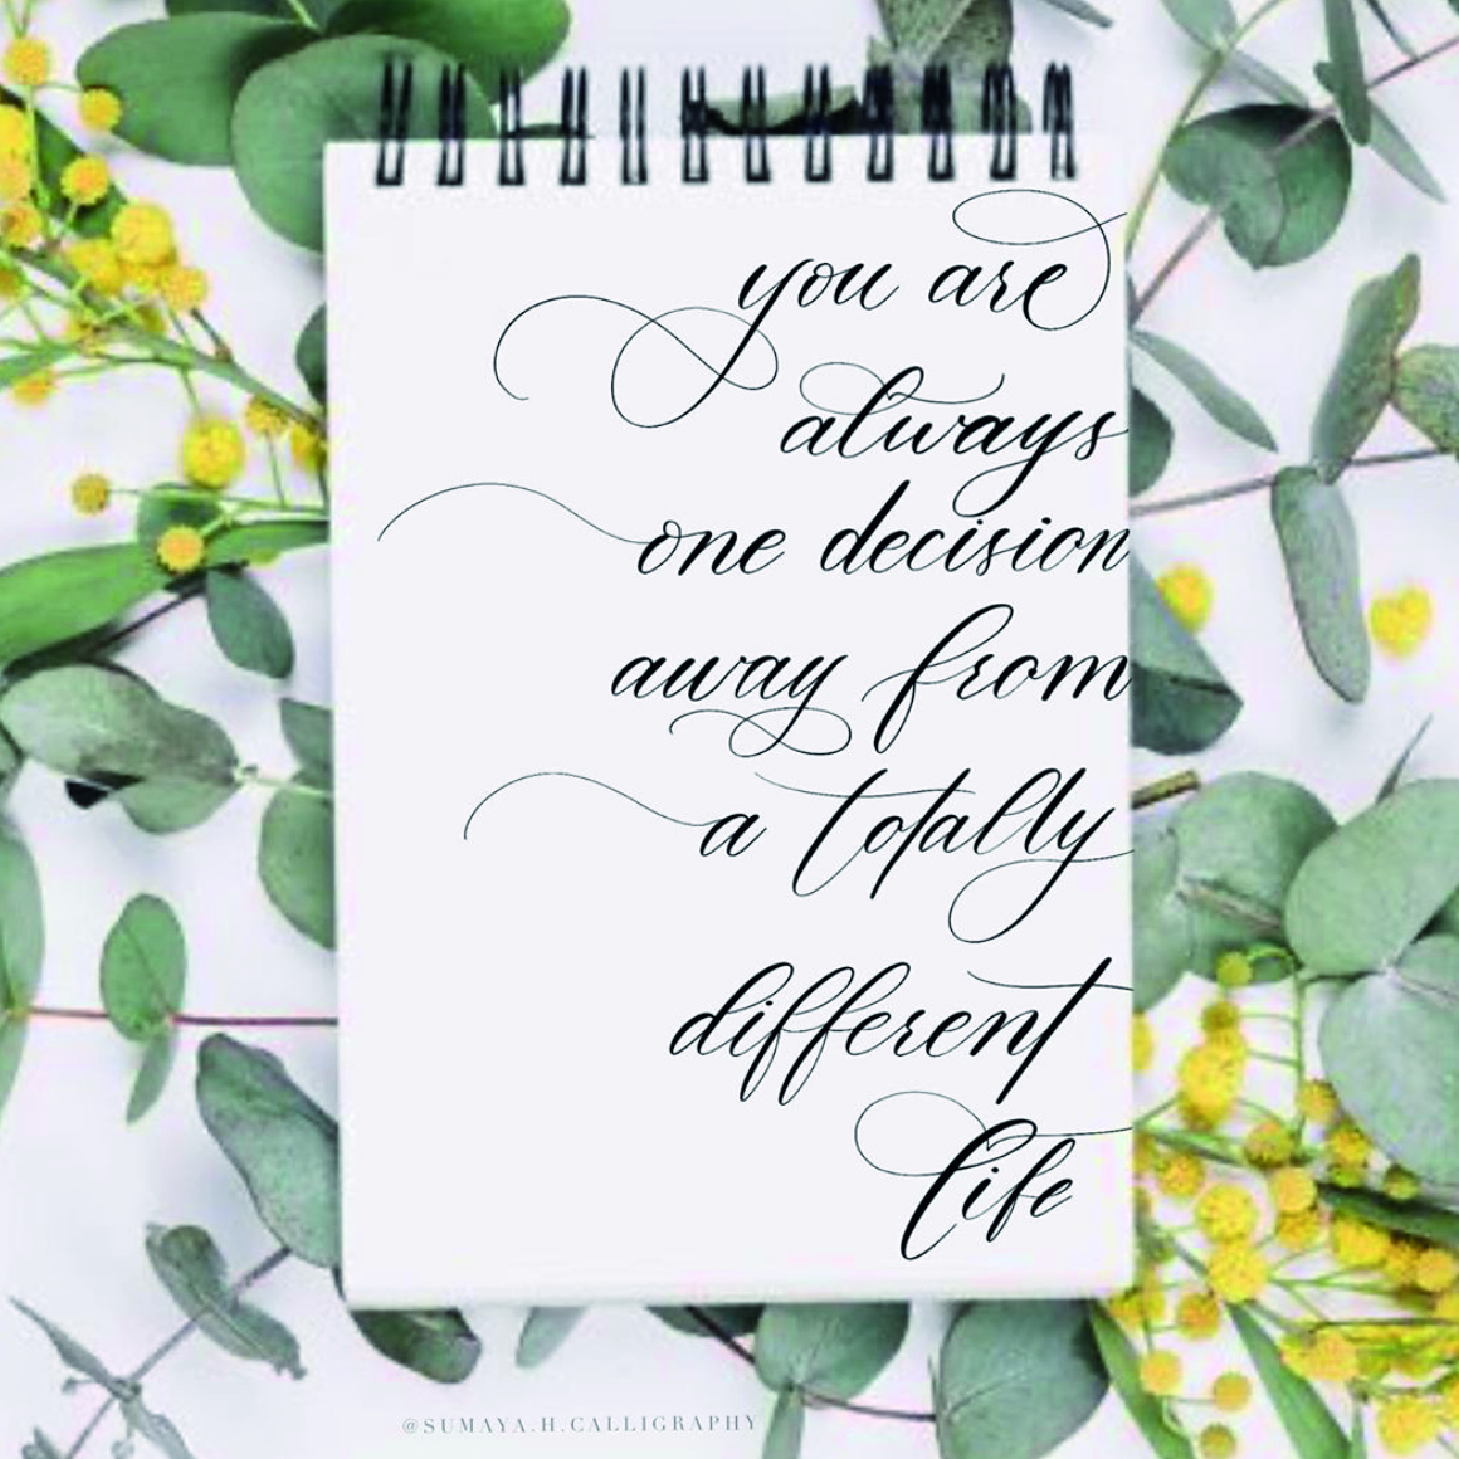 you are
always
one decision
away from
a totally
different
life
@SUMAYA.H.CALLIGRAPHY